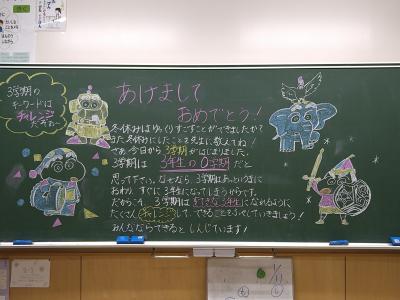 3学期の
キーワードは
チャレンジ
だぞぉ〜
あけまして
おめでとう!
冬休みはゆっくりすごすことができましたか?
また冬休みにしたことを先生に教えてね!
さあ、今日から3学期がはじまりました。
3学期は 3年生の0学期 だと
思って下さい。なぜなら 3学期はあっというまに
おわり、すぐに3年生になってしまうからです。
だからこそ、3学期は すてきな3年生になれるように
たくさん チャレンジ して、できることをふやしていきましょう!
みんななら できると しんじています!